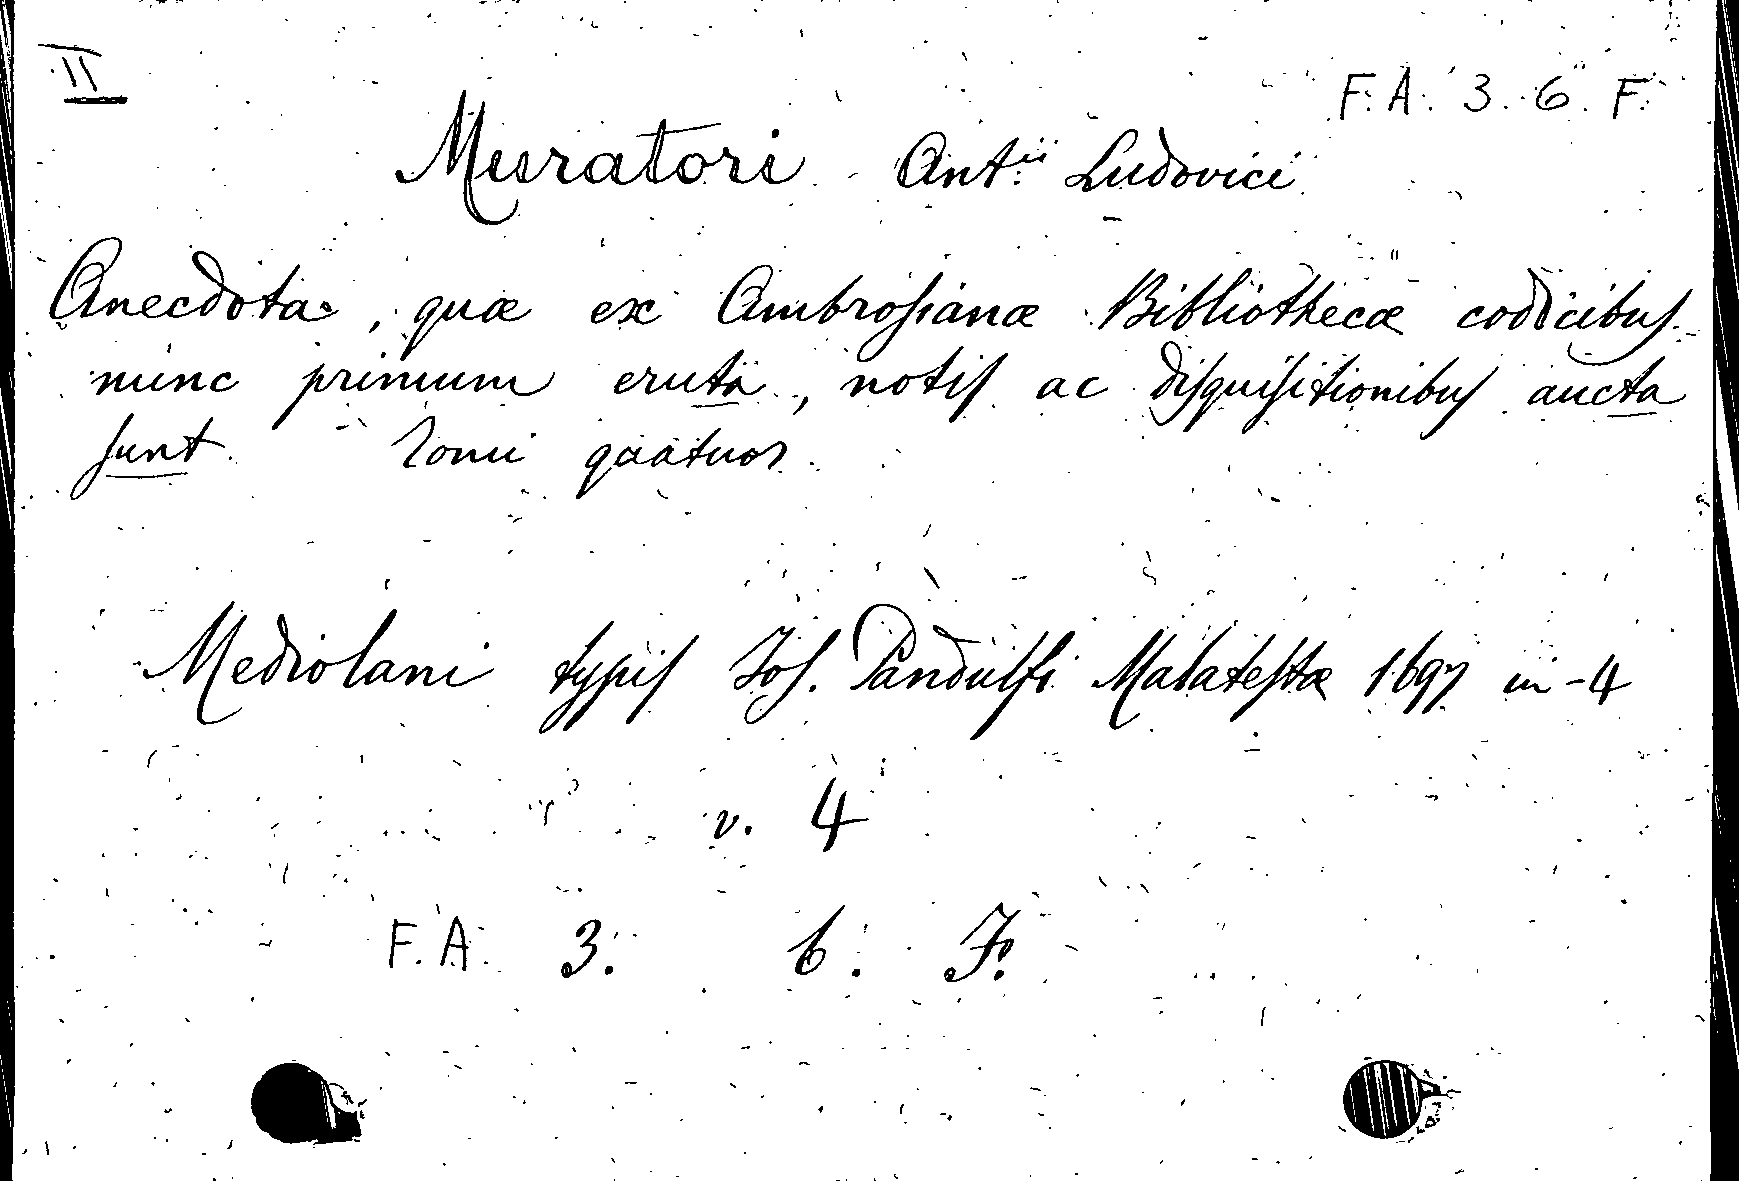 II
F. A. 3. 6. F.
Muratori Ant.ii Ludovici
Anecdota, quæ ex Ambrosianæ Bibliothecæ codicibus
nunc primum eruta, notis ac disquisitionibus aucta
sunt. Tomi quatuor.
Mediolani typis Jos. Pandulfi Malatestæ 1697 in-4
v. 4
F. A. 3. 6. F.